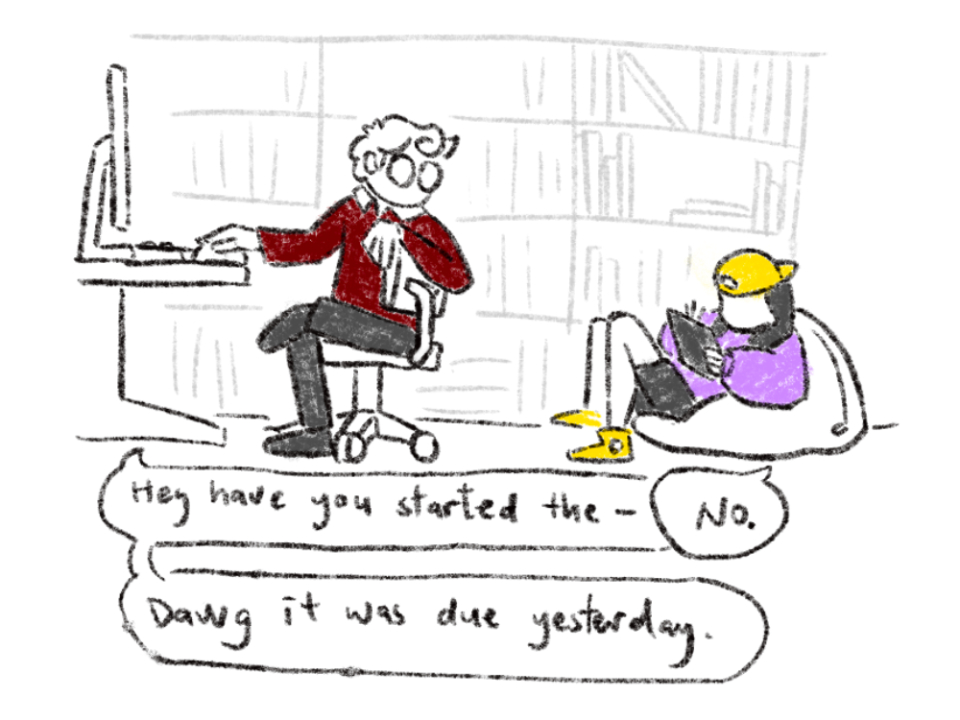 Hey have you started the -
No.
Dawg it was due yesterday.